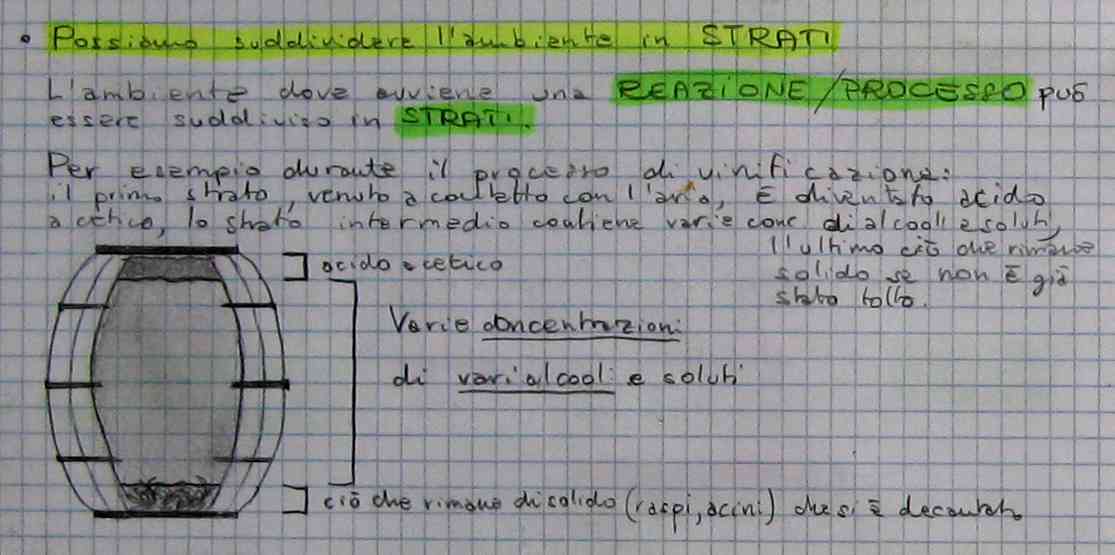 • Possiamo suddividere l'ambiente in STRATI
L'ambiente dove avviene una REAZIONE/PROCESSO può
essere suddiviso in STRATI.
Per esempio durante il processo di vinificazione:
il primo strato, venuto a contatto con l'aria, è diventato acido
acetico, lo strato intermedio contiene varie conc. di alcooli e soluti,
l'ultimo ciò che rimane
solido se non è già
stato tolto.
acido acetico
Varie concentrazioni
di vari alcooli e soluti
ciò che rimane di solido (raspi, acini) che si è decantato